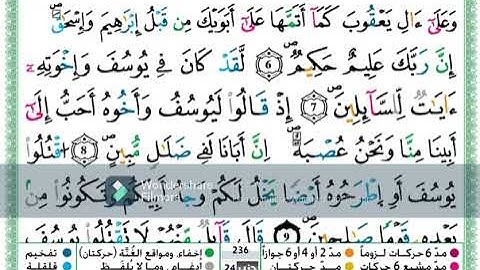 وَعَلَىٰٓ ءَالِ يَعْقُوبَ كَمَآ أَتَمَّهَا عَلَىٰٓ أَبَوَيْكَ مِن قَبْلُ إِبْرَٰهِيمَ وَإِسْحَٰقَ
إِنَّ رَبَّكَ عَلِيمٌ حَكِيمٌ 6 لَّقَدْ كَانَ فِى يُوسُفَ وَإِخْوَتِهِۦٓ
ءَايَٰتٌ لِّلسَّآئِلِينَ 7 إِذْ قَالُوا۟ لَيُوسُفُ وَأَخُوهُ أَحَبُّ إِلَىٰٓ
أَبِينَا مِنَّا وَنَحْنُ عُصْبَةٌ إِنَّ أَبَانَا لَفِى ضَلَٰلٍ مُّبِينٍ 8 ٱقْتُلُوا۟
Wondershare
Filmora
يُوسُفَ أَوِ ٱطْرَحُوهُ أَرْضًا يَخْلُ لَكُمْ وَجْهُ أَبِيكُمْ وَتَكُونُوا۟ مِنۢ
بَعْدِهِۦ قَوْمًا صَٰلِحِينَ 9 قَالَ قَآئِلٌ مِّنْهُمْ لَا تَقْتُلُوا۟ يُوسُفَ
مدّ 6 حركات لزوماً مدّ 2 أو 4 أو 6 جوازاً 236 إخفاء، ومواقع الغُنَّة (حركتان) تفخيم
مدّ مشبع 6 حركات مدّ حركتان إدغام، وما لا يُلفَظ قلقلة